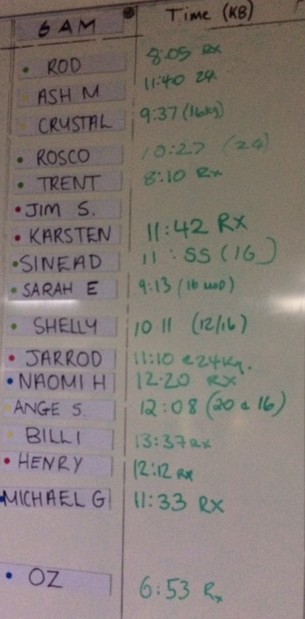 6 AM Time (KB)
ROD 8:05 Rx
ASH M 11:40 24
CRYSTAL 9:37 (16kg)
ROSCO 10:27 (24)
TRENT 8:10 Rx
JIM S.
KARSTEN 11:42 RX
SINEAD 11:55 (16)
SARAH E 9:13 (16
SHELLY 10 11 (12/16)
JARROD 11:10 @24kg.
NAOMI H 12.20 RX
ANGE S. 12:08 (20 @ 16)
BILLI 13:37 Rx
HENRY 12:12 RX
MICHAEL G 11:33 RX
OZ 6:53 Rx